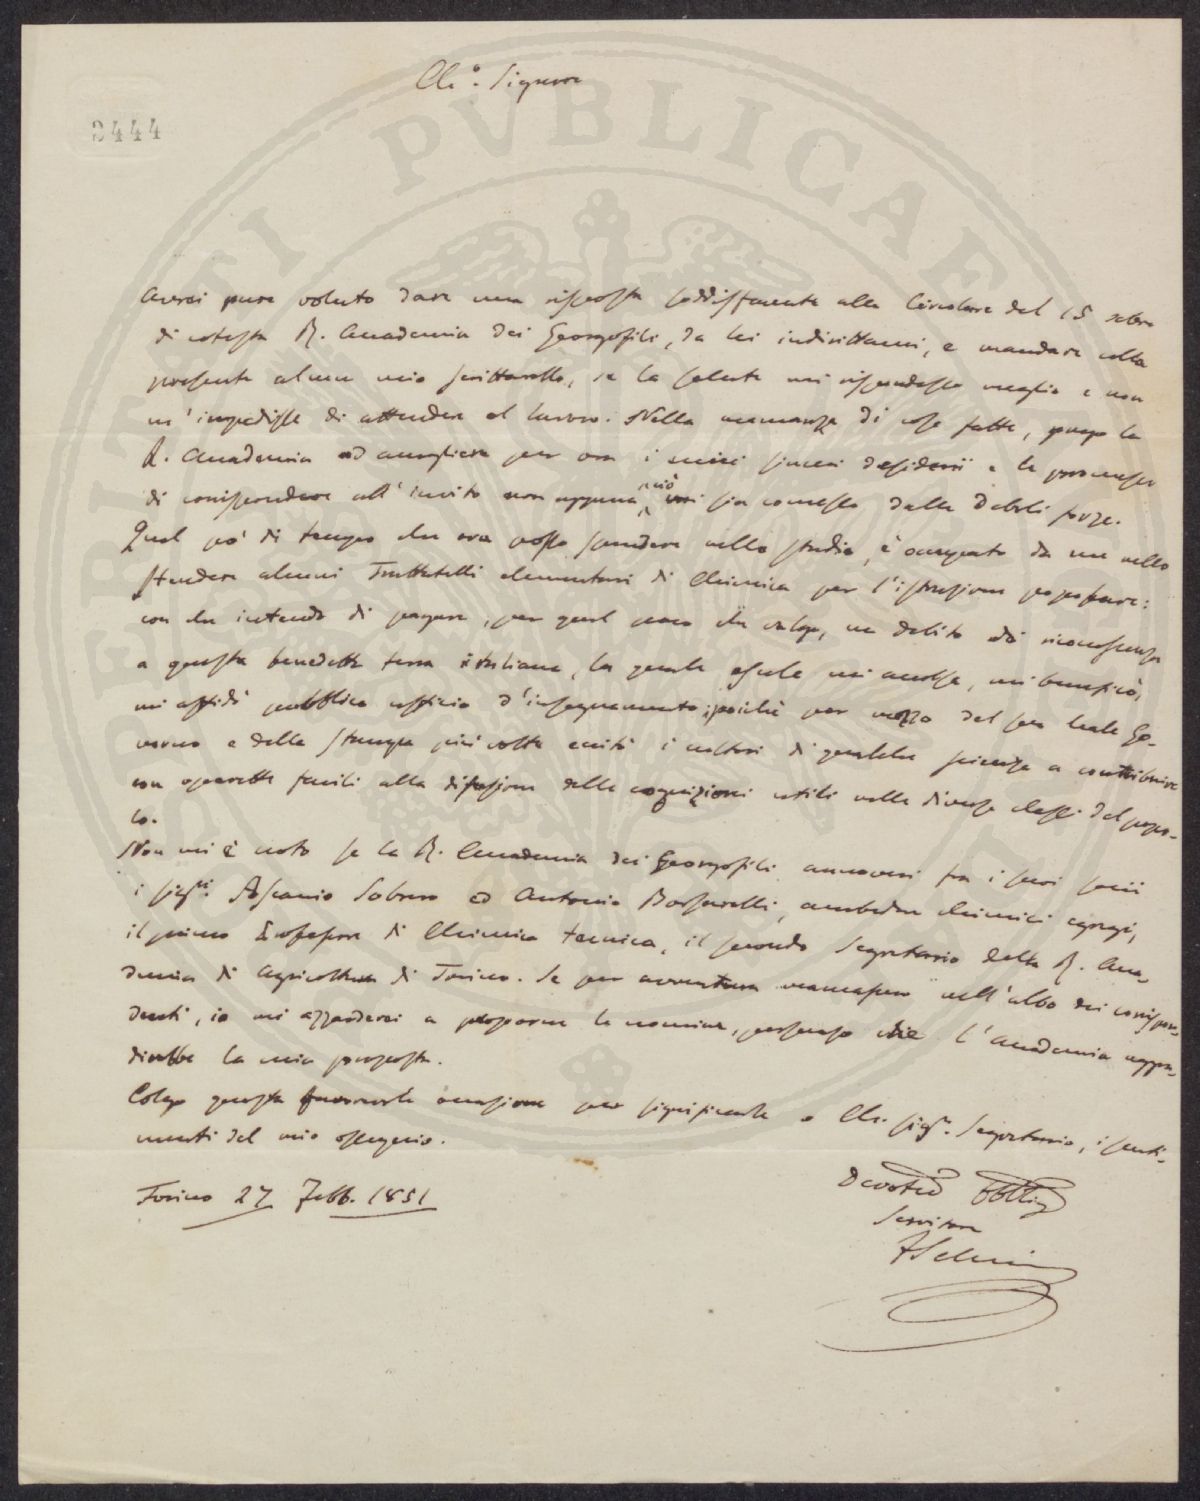 Ch.º Signore
2444
Avrei pure voluto dare una risposta soddisfacente alla Circolare del 15
di cotesta R. Accademia dei Georgofili, da lei indirittami, e mandare colla
presente alcun mio scritterello, se la salute mi rispondesse meglio e non
m'impedisse di attendere al lavoro. Nella mancanza di cose fatte, prego la
R. Accademia ad accogliere per ora i miei sinceri desiderii e la promessa
di corrispondere all'invito non appena ciò mi sia concesso dalle deboli forze.
Quel po' di tempo che ora posso spendere nello studio, è occupato da me nello
stendere alcuni Trattatelli elementari di Chimica per l'istruzione popolare:
con che intendo di pagare, per quel poco che valgo, un debito di riconoscenza
a questa benedetta terra italiana, la quale esule mi accolse, mi beneficò,
mi affidò pubblico ufficio d'insegnamento; poichè per mezzo del suo leale Go-
verno e della stampa più volte eccitò i cultori di qualche scienza a contribuire
con operette facili alla diffusione delle cognizioni utili nelle diverse classi del popo-
lo.
Non mi è noto se la R. Accademia dei Georgofili annoveri fra i suoi socii
i sigri. Ascanio Sobrero ed Antonio Borsarelli, ambedue chimici egregi,
il primo Professore di Chimica tecnica, il secondo Segretario della R. Acca-
demia di Agricoltura di Torino. Se per avventura mancassero nell'albo dei corrispon-
denti, io mi azzarderei a proporne la nomina, persuaso che l'Accademia
direbbe la mia proposta.
Colgo questa favorevole occasione per significarle o Ch. sigr. Segretario, i senti-
menti del mio ossequio.
Torino 27 Febb. 1851
Devotmo Obblimo
Servitore
FSelmi
PERITATI PVBLICAE